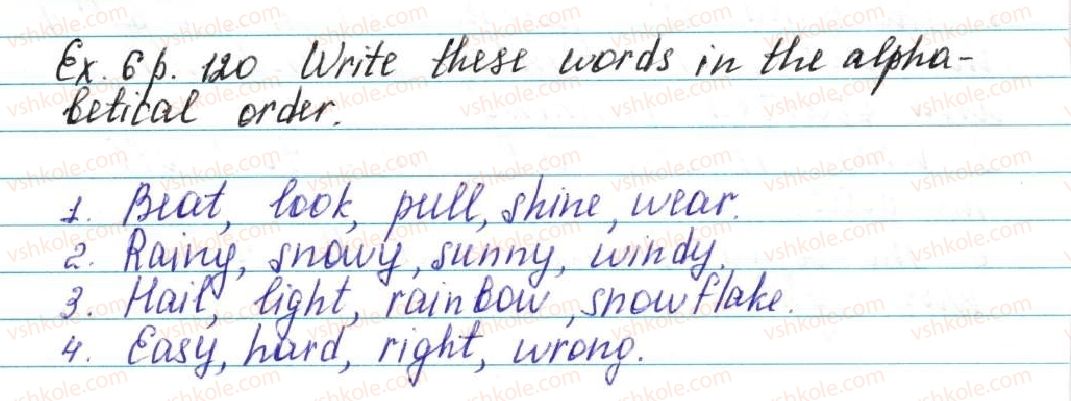 Ex. 6 p. 120 Write these words in the alpha-
betical order.
1. Beat, look, pull, shine, wear.
2. Rainy, snowy, sunny, windy.
3. Hail, light, rainbow, snowflake.
4. Easy, hard, right, wrong.
vshkole.com